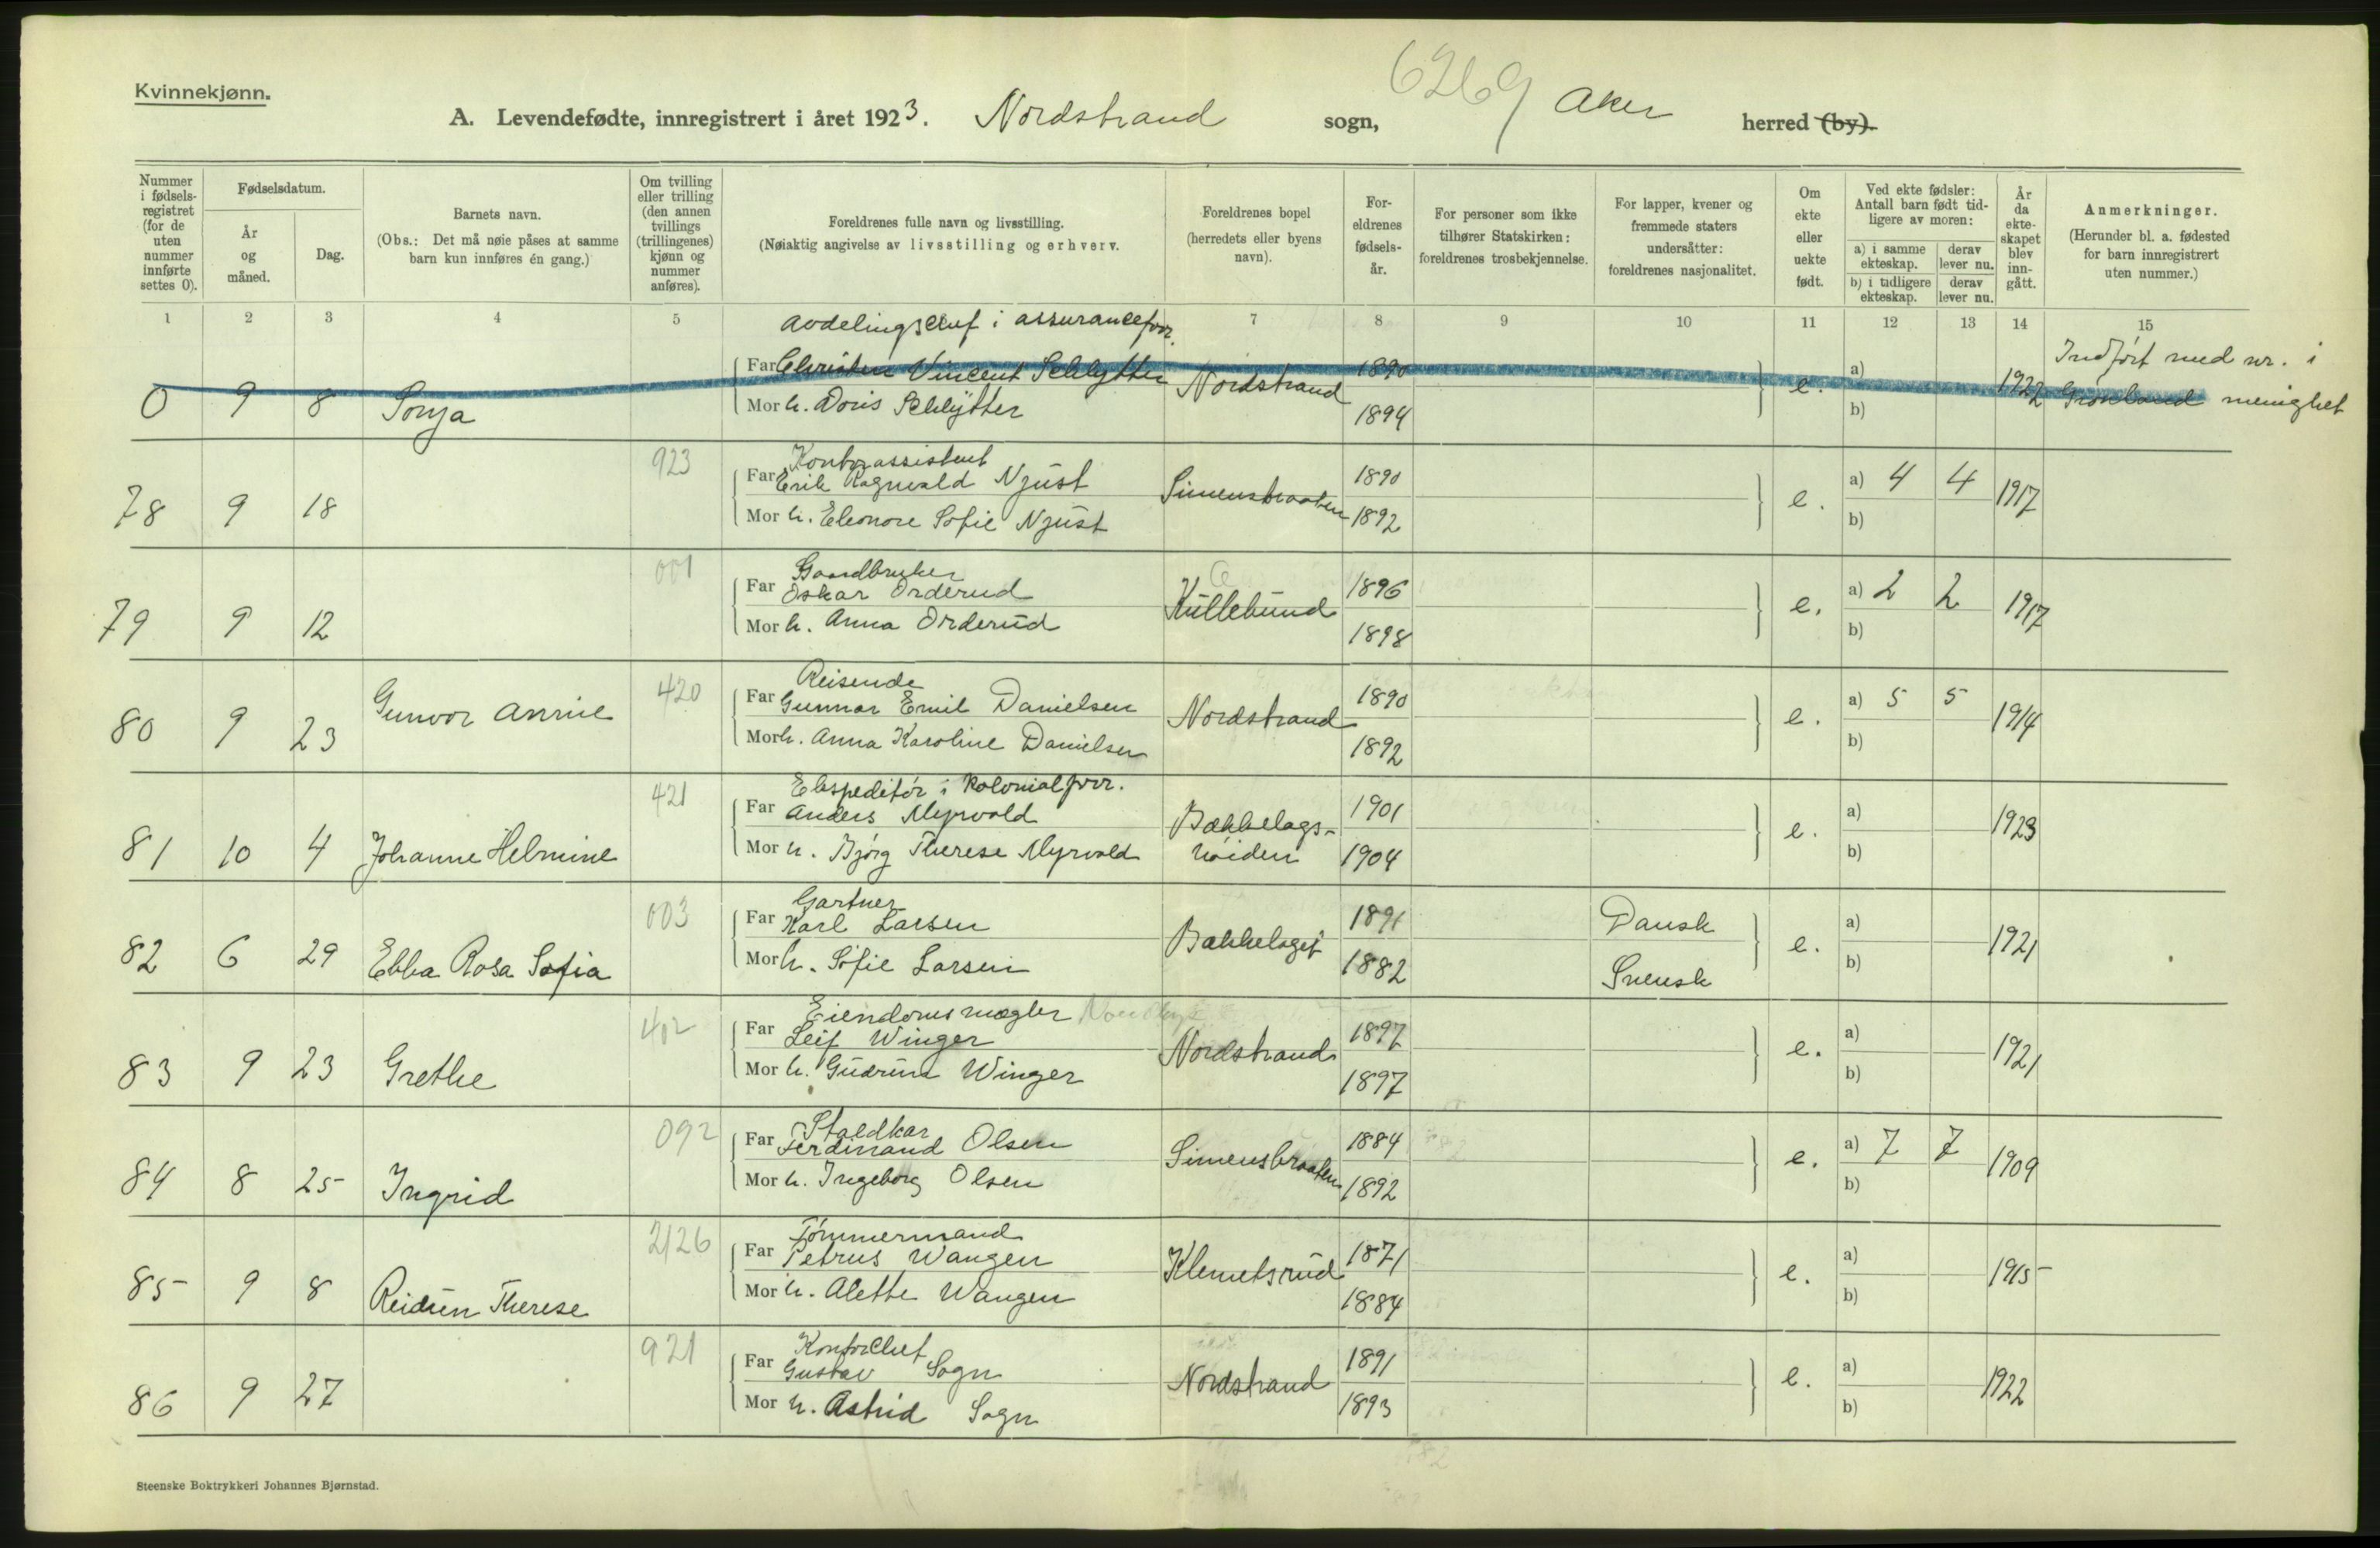 Kvinnekjønn.
6269
A. Levendefødte, innregistrert i året 1923. Nordstrand sogn, Aker herred (by).
Nummer i fødsels-registret (for de uten nummer innførte settes 0).
Fødselsdatum.
År og måned.
Dag.
Barnets navn.
(Obs.: Det må nøie påses at samme barn kun innføres én gang.)
Om tvilling eller trilling (den annen tvillings (trillingenes) kjønn og nummer anføres).
Foreldrenes fulle navn og livsstilling.
(Nøiaktig angivelse av livsstilling og erhverv.
Foreldrenes bopel (herredets eller byens navn).
For-eldrenes fødsels-år.
For personer som ikke tilhører Statskirken: foreldrenes trosbekjennelse.
For lapper, kvener og fremmede staters undersåtter: foreldrenes nasjonalitet.
Om ekte eller uekte født.
Ved ekte fødsler: Antall barn født tid-ligere av moren:
a) i samme ekteskap. derav lever nu.
b) i tidligere ekteskap. derav lever nu.
År da ekte-skapet blev inn-gått.
Anmerkninger.
(Herunder bl. a. fødested for barn innregistrert uten nummer.)
1 2 3 4 5 7 8 9 10 11 12 13 14 15
Avdelingschef i assuranceforr.
Far Christen Vincent Schlytter 1890 a) Indført med nr. i
0 9 8 Sonja Nordstrand e. 1922 Grønland menighet
Mor h. Doris Schlytter 1894 b)
923 Kontorassistent
Far Erik Ragnvald Njust 1890 a) 4 4
78 9 18 Simensbraaten e. 1917
Mor h. Eleonore Sofie Njust 1892 b)
001 Gaardbruker
Far Oskar Orderud 1896 a) 2 2
79 9 12 Kullebund e. 1917
Mor h. Anna Orderud 1898 b)
420 Reisende
Far Gunnar Emil Danielsen 1890 a) 5 5
80 9 23 Gunvor Annie Nordstrand e. 1914
Mor h. Anna Karoline Danielsen 1892 b)
421 Ekspeditør i kolonialforr.
Far Anders Myrvold 1901 a)
81 10 4 Johanne Helmine Bækkelags-høiden e. 1923
Mor h. Bjørg Therese Myrvold 1904 b)
003 Gartner
Far Karl Larsen 1891 Dansk a)
82 6 29 Ebba Rosa Sofia Bækkelaget e. 1921
Mor h. Sofie Larsen 1882 Svensk b)
402 Eiendomsmægler
Far Leif Winger 1897 a)
83 9 23 Grethe Nordstrand e. 1921
Mor h. Gudrun Winger 1897 b)
092 Staldkar
Far Ferdinand Olsen 1884 a) 7 7
84 8 25 Ingrid Simensbraaten e. 1909
Mor h. Ingeborg Olsen 1892 b)
2126 Tømmermand
Far Petrus Wangen 1871 a)
85 9 8 Reidun Therese Klemetsrud e. 1915
Mor h. Alette Wangen 1884 b)
921 Kontorchef
Far Gustav Sogn 1891 a)
86 9 27 Nordstrand e. 1922
Mor h. Astrid Sogn 1893 b)
Steenske Boktrykkeri Johannes Bjørnstad.